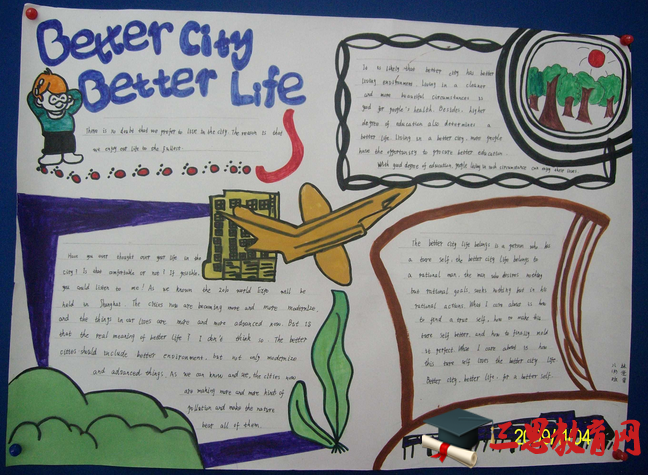 Better City
Better Life
There is no doubt that we prefer to live in the city. The reason is that
we enjoy our life to the fullest.
It is likely that better city has better
living environment. Living in a cleaner
and more beautiful circumstances is
good for people's health. Besides, higher
degree of education also determines a
better life. Living in a better city, more people
have the opportunity to procure better education.
With good degree of education, people living in such circumstance can enjoy their lives.
Have you ever thought over your life in the
city? Is that comfortable or not? If possible,
you could listen to me! As we known the 2010 world Expo will be
held in Shanghai. The cities now are becoming more and more modernize,
and the things in our lives are more and more advanced now. But is
that the real meaning of better life? I don't think so. The better
cities should include better environment, but not only modernize
and advanced things. As we can know and see, the cities now
are making more and more kinds of
pollution and make the nature
bear all of them.
The better city life belongs to a person who has
a true self. the better city life belongs to
a rational man, the man who desires nothing
but rational goals, seeks nothing but in his
rational actions. What I care about is how
to find a true self, how to make the
true self better, and how to finally mold
it perfect. What I care about is how
this true self lives the better city life.
Better city, better life, for a better self.
2009/1/04
三思教育网